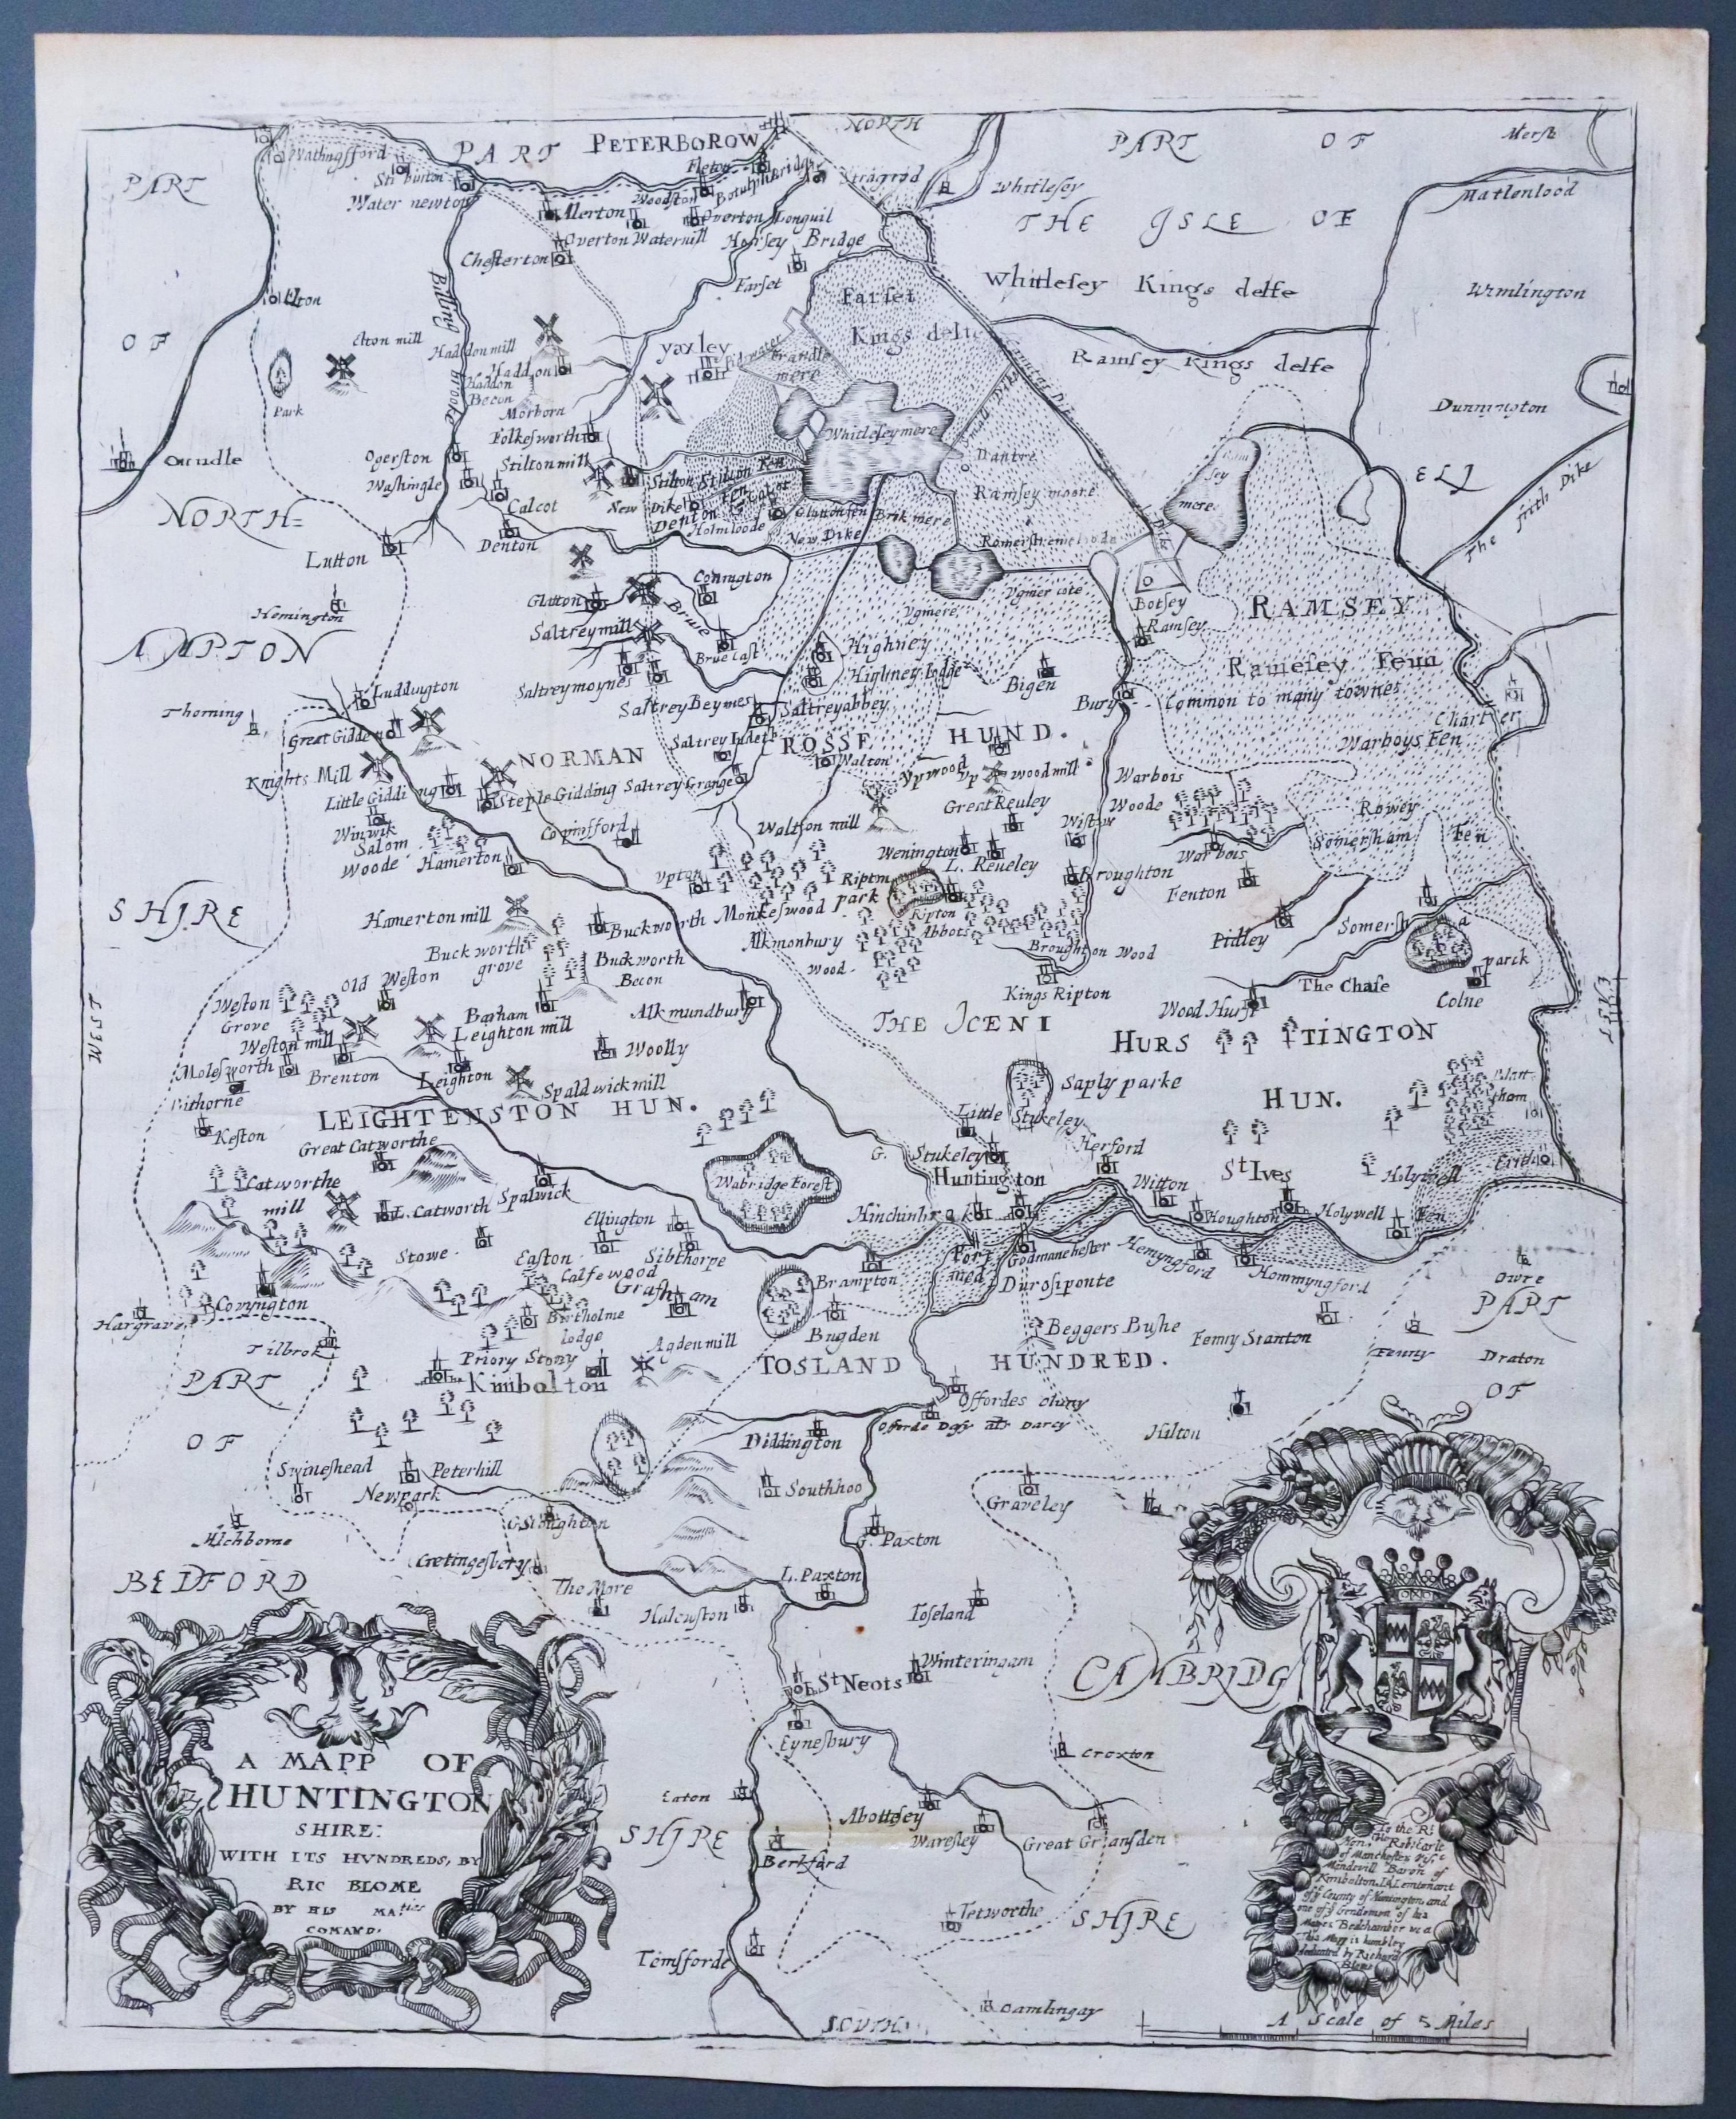 NORTH
PART
PETERBOROW
PART
OF
Mersh
PART
Fleton
Botulphbridg
Whitlesey
Water newton
Woodston
Alerton
Overton Longuil
THE ISLE OF
Overton Watervill
Horsey Bridge
Chesterton
Farset
Whitlesey Kings delfe
Wimlington
Elton
Billing brooke
Farset
Kings delfe
OF
Elton mill
Haddon mill
Yaxley
Ramsey Kings delfe
Haddon
Haddon
Becon
Park
Morborn
Dunnington
Folkesworth
Whitleseymere
Oundle
Ogerston
Stilton mill
ELI
Washingle
Stilton
Ramsey moore
Ramsey
mere
The Frith Dike
NORTH=
Calcot
New Dike
Denton
Holmloode
Brik mere
New Dike
Lutton
Denton
Conington
Vgmere
Botsey
RAMSEY
Hemington
Glatton
Ramsey
Saltreymill
Highney
AMPTON
Highney lodge
Ramesey Fenn
Luddington
Saltreymoynes
Bigen
Bury
Common to many townes
Thorning
Saltrey Beymes
Saltreyabbey
Great Gidden
NORMAN CROSSE HUND.
Warboys Fen
Knights Mill
Walton
Little Gidding
Steple Gidding
Saltrey Grange
Vpwood
Vpwoodmill
Warbois
Woode
Great Reuley
Rowey
Winwik
Walton mill
Wistow
Somersham Fen
Salom
Woode
Hamerton
Wenington
L. Reueley
Warbois
Vpton
Ripton
park
Broughton
Fenton
SHIRE
Hamerton mill
Buckworth
Monkeswood
Ripton
Abbots
Pidley
Buckworth
grove
Alkmonbury
Wood
Broughton Wood
Old Weston
Buckworth
Becon
Kings Ripton
The Chase
parck
Weston
Grove
Barham
Alkmundbury
Wood Hurst
Colne
WEST
Weston mill
Leighton mill
THE ICENI
HURSTINGTON
Molesworth
Brenton
Leighton
Woolly
Spaldwickmill
Saply parke
Bithorne
LEIGHTENSTON HUN.
HUN.
Keston
Little
Stukeley
Great Catworthe
G.
Stukeley
Herford
St Ives
Catworthe
mill
Spalwick
Wabridge Forest
Huntington
Witton
Holywell
L. Catworth
Hinchinbrok
Houghton
Holywell
Fen
Stowe
Ellington
Easton
Sibthorpe
Port
med
Godmanchester
Hemyngford
Hommyngford
Calfewood
Grafham
Brampton
Durosiponte
Owre
Covyngton
Hargrave
Birtholme
lodge
Bugden
Beggers Bushe
Fenny Stanton
PART
Tilbrok
Priory Stony
Agdenmill
TOSLAND HUNDRED.
Fenny
Draton
PART
Kimbolton
Offordes cluny
OF
Offorde
OF
Diddington
Hilton
Swineshead
Peterhill
Southhoo
Newpark
Graveley
G. Stoughton
G. Paxton
Cretingesbery
L. Paxton
BEDFORD
The More
Halcuston
Toseland
St Neots
Winteringam
CAMBRIDG
Eynesbury
Croxton
Eaton
Abottsley
Waresley
Great Gransden
SHIRE
Berkford
Tetworthe
SHIRE
Temsforde
Gamlingay
SOUTH
A MAPP OF
HUNTINGTON
SHIRE:
WITH ITS HVNDREDS, BY
RIC BLOME
BY HIS MA.ties
COMAND.
To the Rt
Honble Robt Earle
of Manchester Visc.t
Mandevill Baron of
Kimbolton, Ld Leiutenant
of ye County of Huntington, and
one of ye Gentlemen of his
Maties Bedchamber &c. a
This Mapp is humbley
dedicated by Richard
Blome
A Scale of 5 Miles